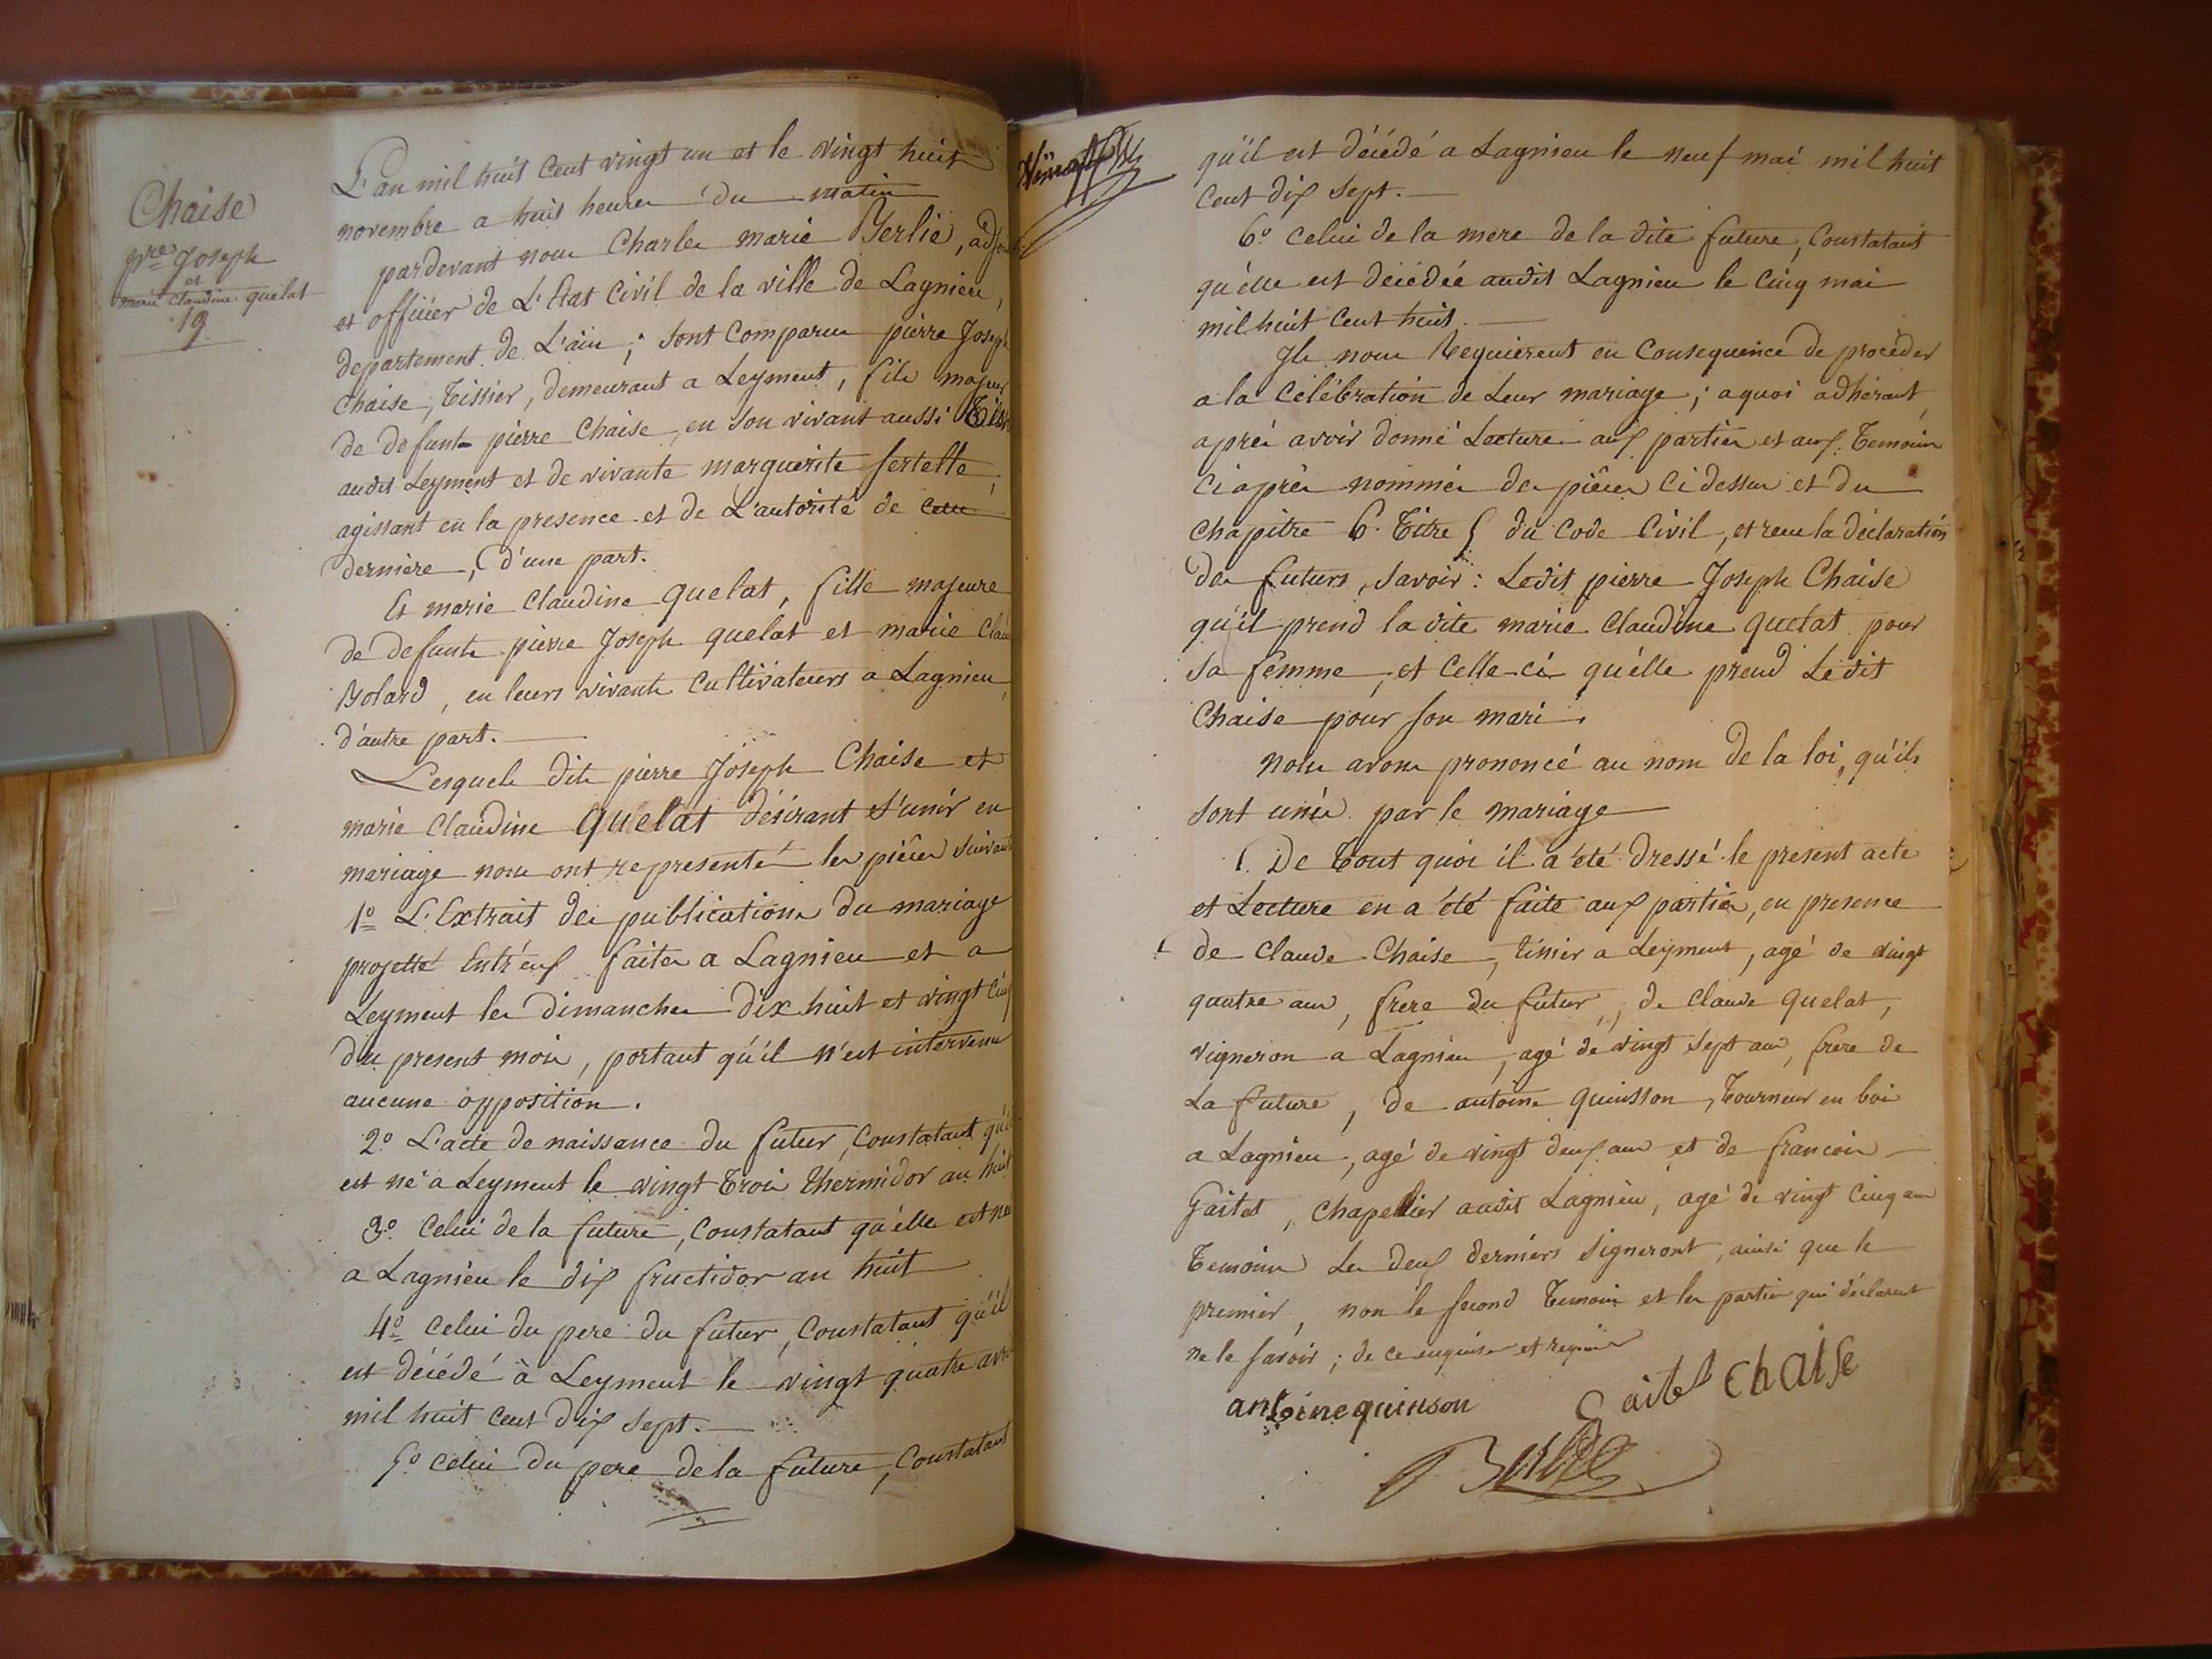 Chaise
pre Joseph
et
marie Claudine quelat
19
L'an mil huit cent vingt un et le vingt huit
novembre a huit heures du matin
pardevant nous Charles marie Yerlie, adjoi
et officier de L'Etat Civil de la ville de Lagnieu,
departement de L'ain; sont comparus pierre Joseph
Chaise, tissier, demeurant a Leyment, fils majeur
de defunt pierre Chaise, en son vivant aussi Tiss
audit Leyment et de vivante marguerite fertelle,
agissant en la presence et de L'autorité de cette
derniere, d'une part.
Et marie Claudine quelat, fille majeure
de defunts pierre Joseph quelat et marie Clau
Bolard, en leurs vivants Cultivateurs a Lagnieu,
d'autre part.
Lesquels dits pierre Joseph Chaise et
marie Claudine quelat désirant s'unir en
mariage nous ont representé les pièces suivant
1º L'Extrait des publications du mariage
projetté entr'eux faites a Lagnieu et a
Leyment les dimanches dix huit et vingt cinq
du present mois, portant qu'il n'est intervenu
aucune opposition.
2º L'acte de naissance du futur, constatant qu'il
est né a Leyment le vingt trois thermidor an huit
3º Celui de la future, constatant qu'elle est née
a Lagnieu le dix fructidor an huit
4º celui du pere du futur, constatant qu'il
est décédé à Leyment le vingt quatre avri
mil huit cent dix sept.
5º celui du pere de la future, constatant
qu'il est décédé a Lagnieu le neuf mai mil huit
cent dix sept.
6º celui de la mere de la dite future, constatant
qu'elle est décédée audit Lagnieu le cinq mai
mil huit cent huit.
Ils nous Requierent en consequence de procéder
a la célébration de leur mariage; a quoi adhérant,
après avoir donné Lecture aux parties et aux Temoins
ci après nommés des pièces ci dessus et du
chapitre 6. Titre 5 du Code Civil, et reçu la déclaration
des futurs, savoir: Ledit pierre Joseph Chaise
qu'il prend la dite marie Claudine quelat pour
sa femme, et celle-ci qu'elle prend Ledit
Chaise pour son mari.
nous avons prononcé au nom de la loi, qu'ils
sont unis par le mariage
De tout quoi il a été dressé le present acte
et Lecture en a été faite aux parties, en presence
de Claude Chaise, tissier a Leyment, agé de vingt
quatre ans, frere du futur, de Claude quelat,
vigneron a Lagnieu, agé de vingt sept ans, frere de
La future, de antoine quinsson, tourneur en bois
a Lagnieu, agé de vingt deux ans et de francois
Gaitet, chapellier audit Lagnieu, agé de vingt cinq ans
Temoins Les deux derniers signeront, ainsi que le
premier, non le second Temoin et les parties qui déclarent
ne le savoir; de ce enquis et requis
antoine quinson Gaitet Chaise